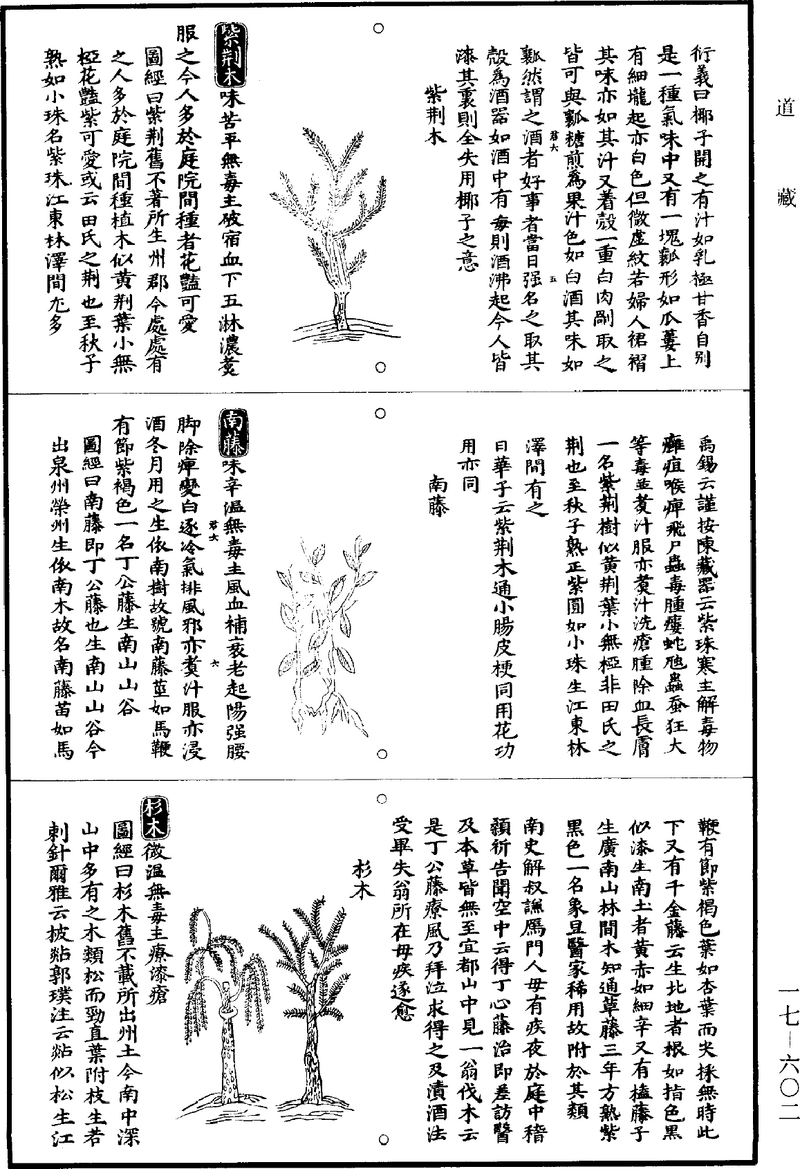 道藏
衍義曰椰子開之有汁如乳極甘香自別
是一種氣味中又有一塊瓤形如瓜蔞上
有細壠起亦白色但微虛紋若婦人裙褶
其味亦如其汁又着殼一重白肉剮取之
皆可與瓤糖煎為果汁色如白酒其味如
君六 五
瓤然謂之酒者好事者當日强名之取其
殼為酒器如酒中有毒則酒沸起今人皆
漆其裏則全失用椰子之意
紫荆木
紫荆木味苦平無毒主破宿血下五淋濃煑
服之今人多於庭院間種者花豔可愛
圖經曰紫荆舊不著所生州郡今處處有
之人多於庭院間種植木似黄荆葉小無
椏花豔紫可愛或云田氏之荆也至秋子
熟如小珠名紫珠江東林澤間尤多
禹錫云謹按陳藏器云紫珠寒主解毒物
癰疽喉痺飛尸蟲毒腫瘻蛇虺蟲蚕狂犬
等毒並煑汁服亦煑汁洗瘡腫除血長膚
一名紫荆樹似黄荆葉小無椏非田氏之
荆也至秋子熟正紫圓如小珠生江東林
澤間有之
日華子云紫荆木通小腸皮梗同用花功
用亦同
南藤
南藤味辛溫無毒主風血補衰老起陽强腰
君六 六
脚除痺變白逐冷氣排風邪亦煑汁服亦浸
酒冬月用之生依南樹故號南藤莖如馬鞭
有節紫褐色一名丁公藤生南山山谷
圖經曰南藤即丁公藤也生南山山谷今
出泉州榮州生依南木故名南藤苗如馬
鞭有節紫褐色葉如杏葉而尖採無時此
下又有千金藤云生北地者根如指色黑
似漆生南土者黄赤如細辛又有榼藤子
生廣南山林間木如通草藤三年方熟紫
黑色一名象豆醫家稀用故附於其類
南史解叔謙鴈門人母有疾夜於庭中稽
顙祈告聞空中云得丁心藤治即差訪醫
及本草皆無至宜都山中見一翁伐木云
是丁公藤療風乃拜泣求得之及漬酒法
受畢失翁所在母疾遂愈
杉木
杉木微溫無毒主療漆瘡
圖經曰杉木舊不載所出州土今南中深
山中多有之木類松而勁直葉附枝生若
刺針爾雅云柀煔郭璞注云煔似松生江
一七—六〇二